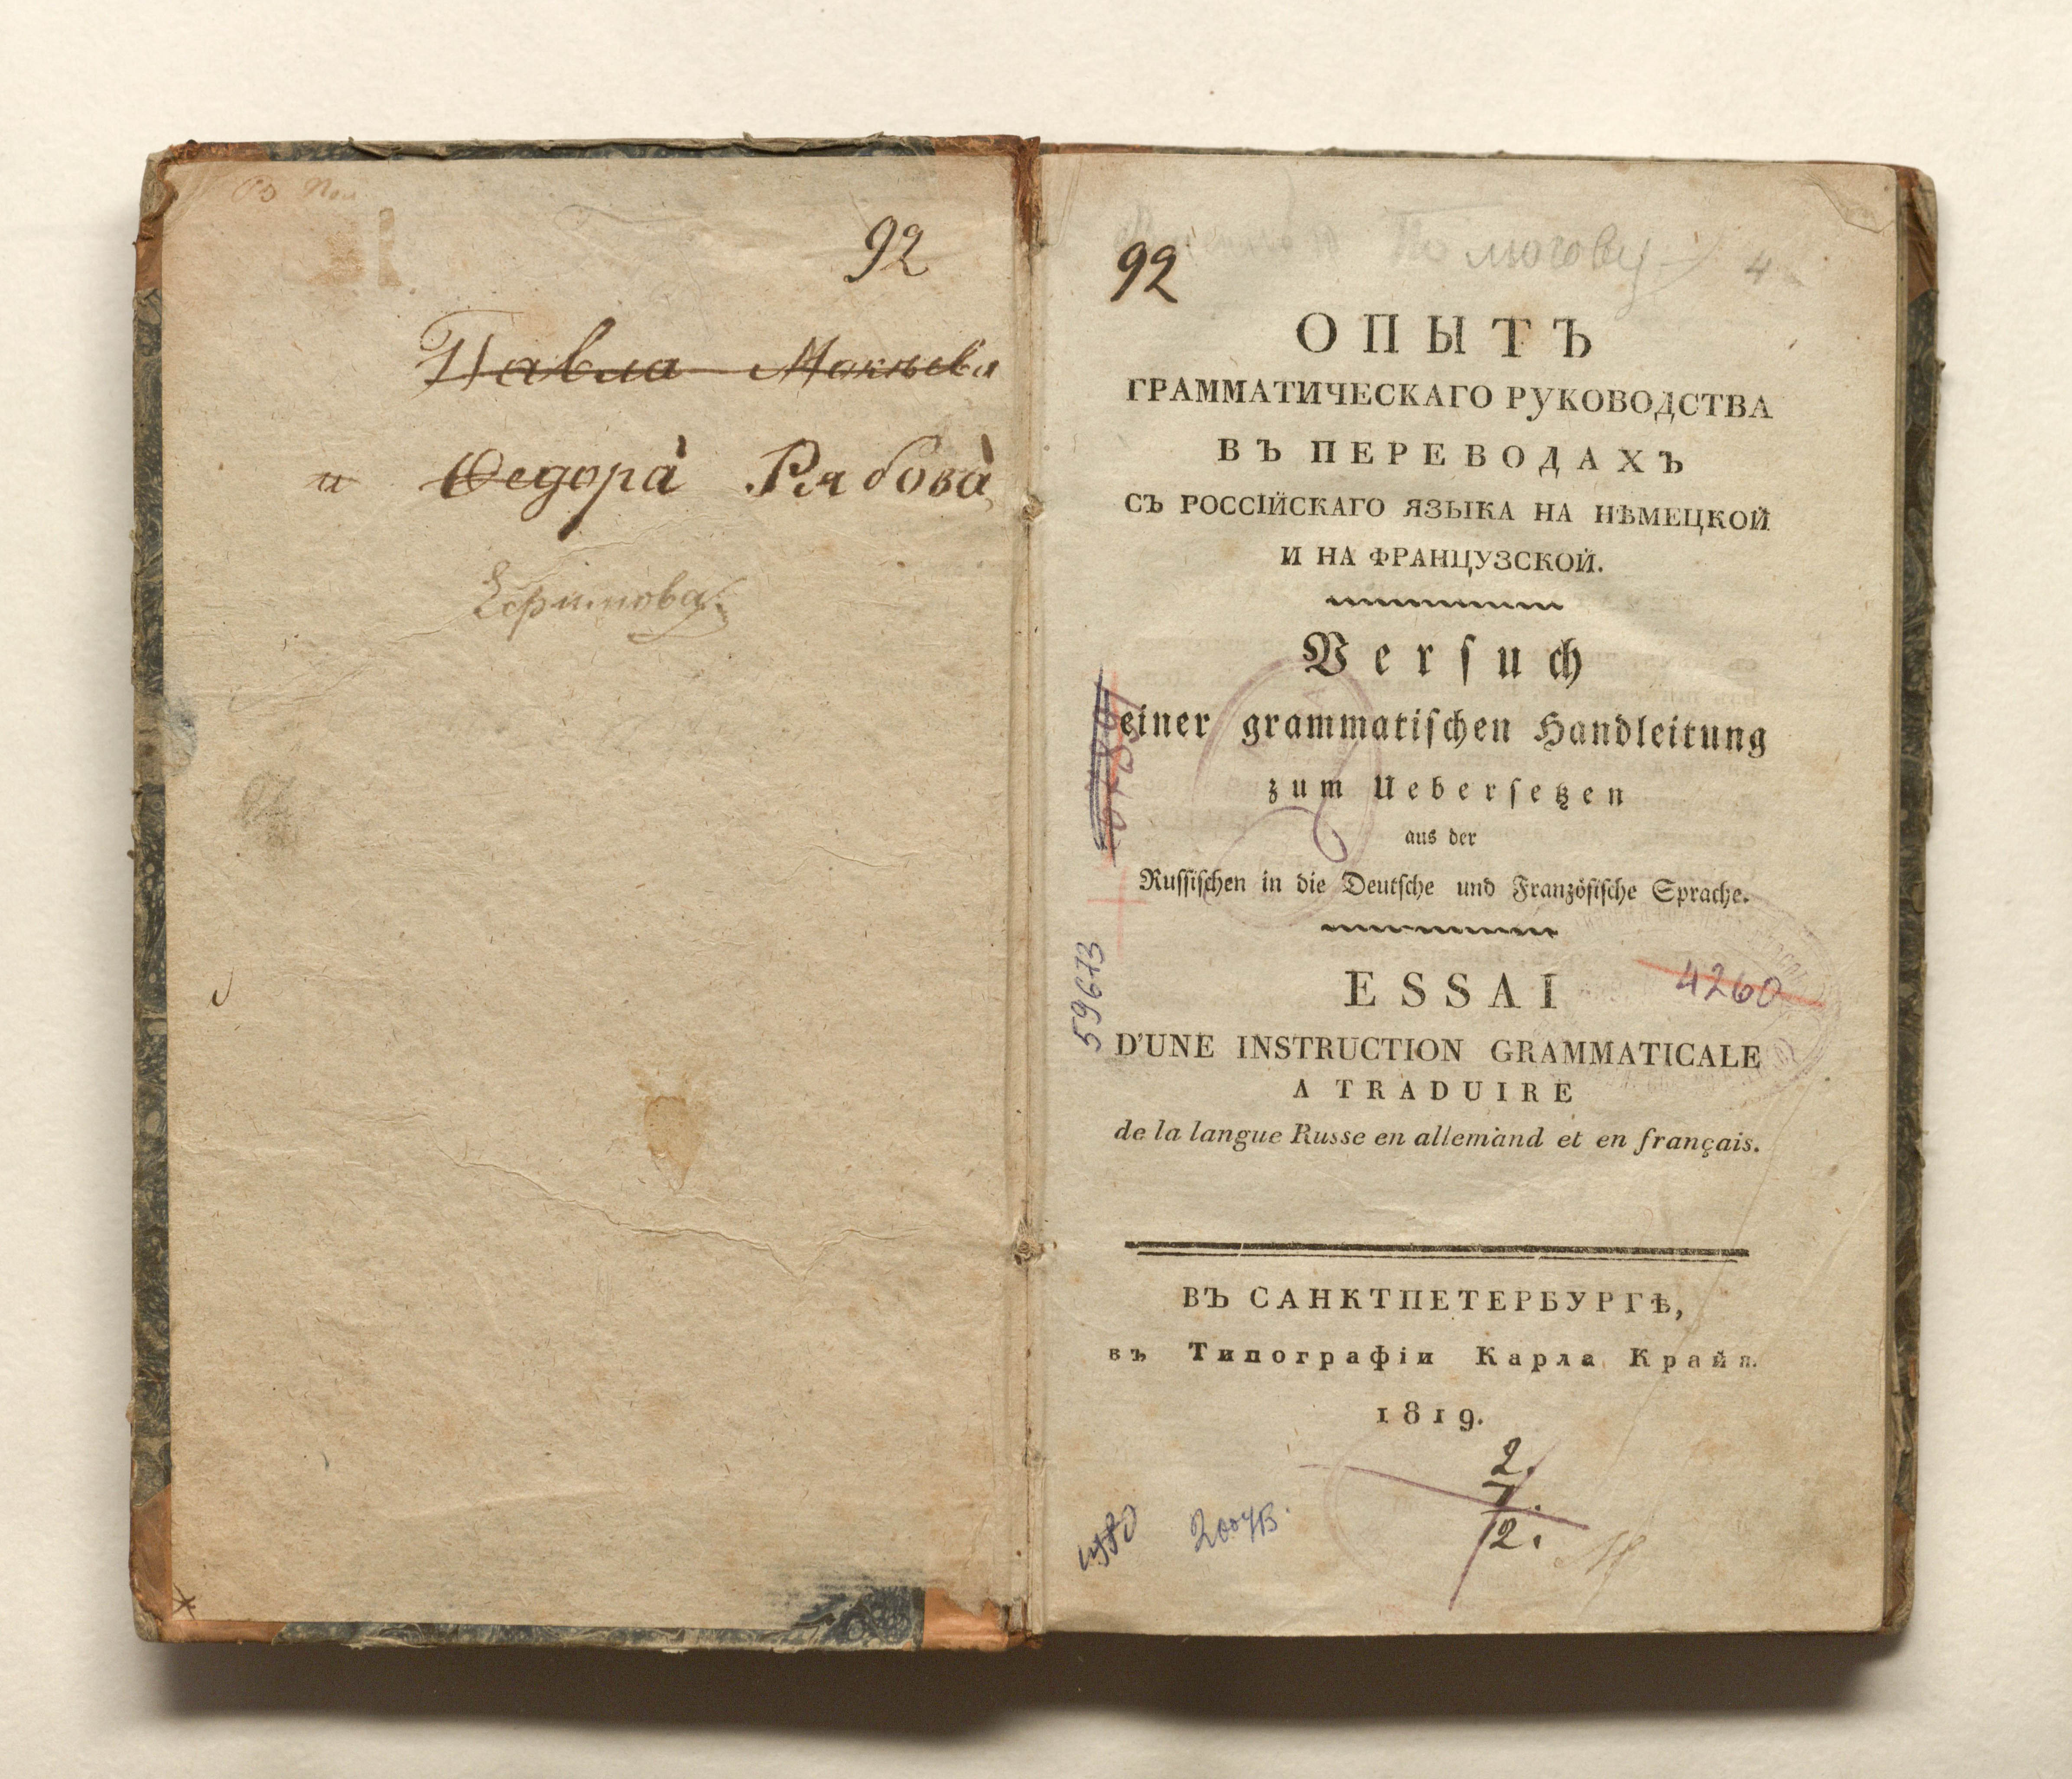 92
Павла Мокѣева
и Ѳедора Рябова
Ефимова
92
4
ОПЫТЪ
ГРАММАТИЧЕСКАГО РУКОВОДСТВА
ВЪ ПЕРЕВОДАХЪ
СЪ РОССІЙСКАГО ЯЗЫКА НА НѢМЕЦКОЙ
И НА ФРАНЦУЗСКОЙ.
Verſuch
einer grammatiſchen Handleitung
zum Ueberſetzen
aus der
Ruſſiſchen in die Deutſche und Franzöſiſche Sprache.
59673
ESSAI
4260
D'UNE INSTRUCTION GRAMMATICALE
A TRADUIRE
de la langue Russe en allemand et en français.
ВЪ САНКТПЕТЕРБУРГѢ,
въ Типографіи Карла Крайя.
1819.
2.
1.
2.